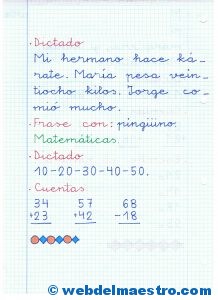 · Dictado
Mi hermano hace ká-
rate. María pesa vein-
tiocho kilos. Jorge co-
mió mucho.
· Frase con: pingüino.
Matemáticas.
· Dictado
10-20-30-40-50.
· Cuentas
34 57 68
+23 +42 -18
© webdelmaestro.com